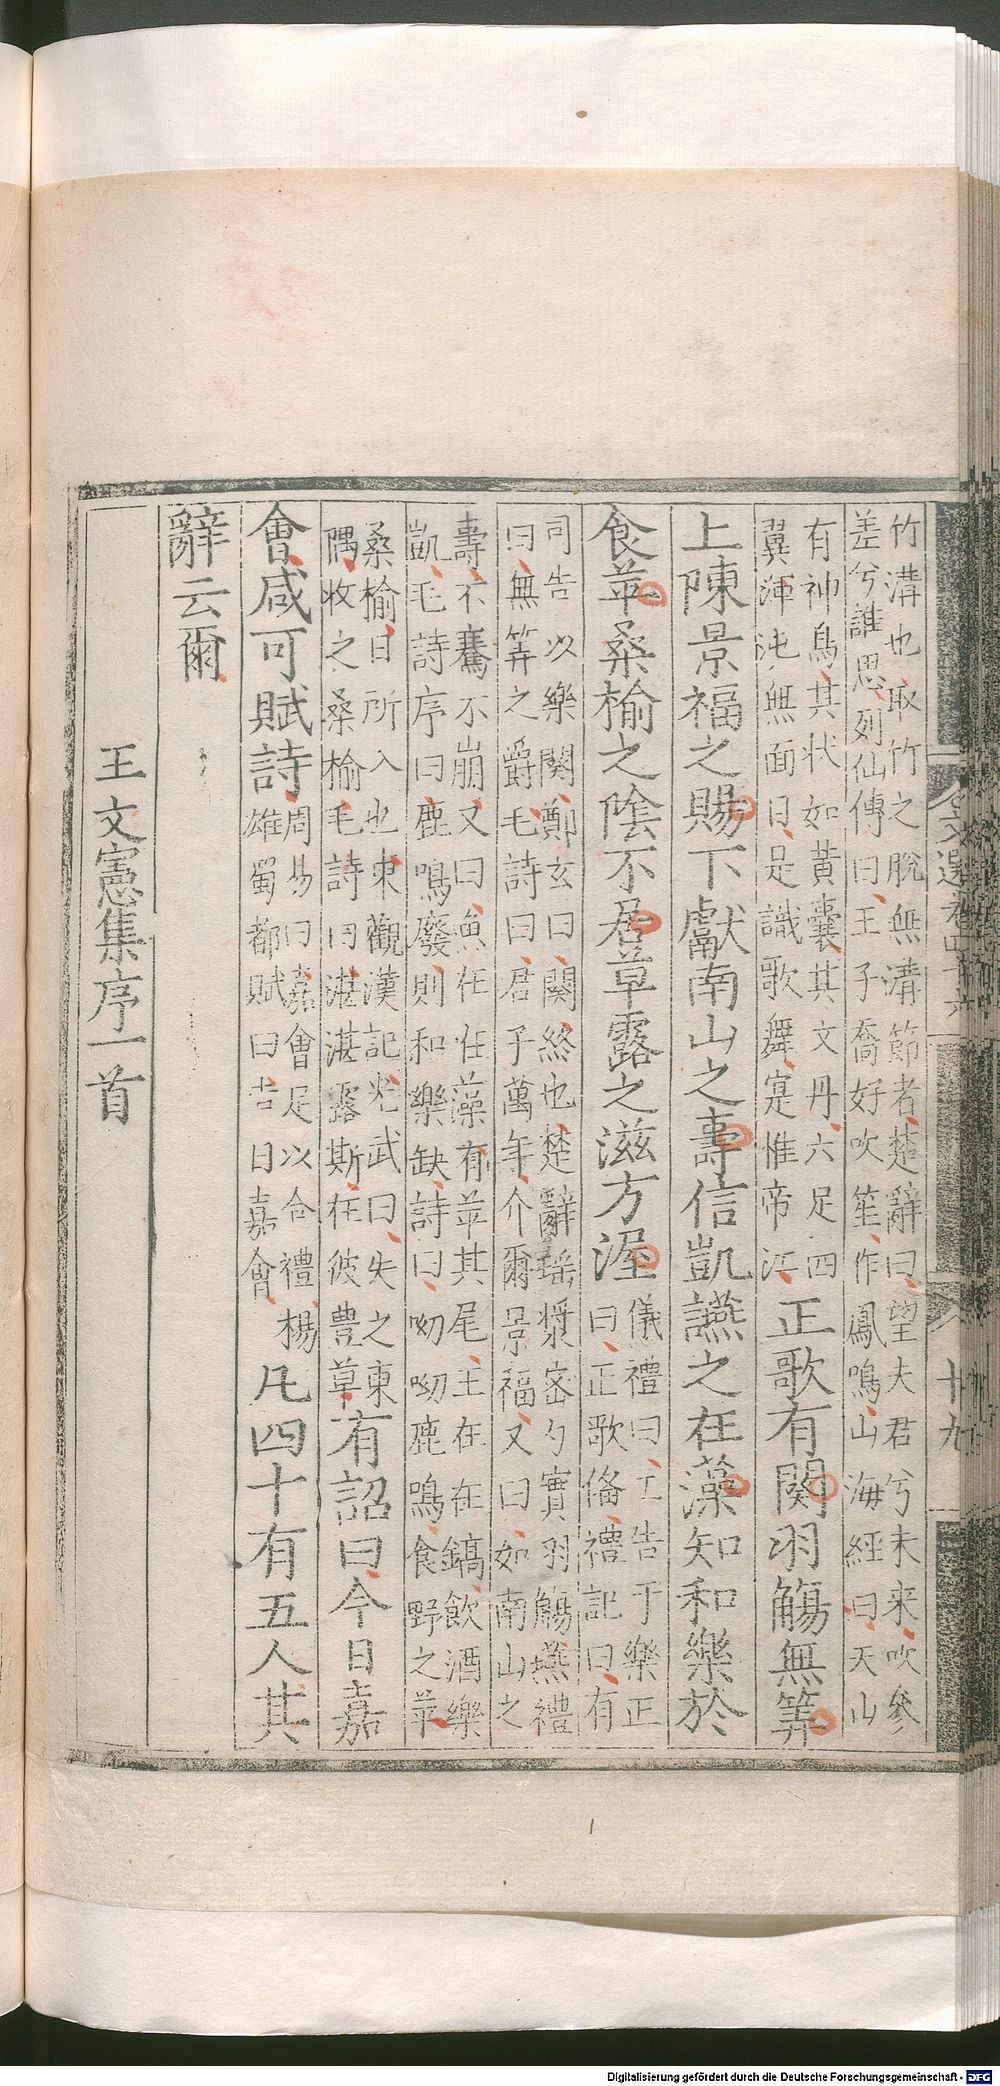 文選卷四十六
十九
竹溝也取竹之脫無溝節者楚辭曰望夫君兮未来吹參
差兮誰思列仙傳曰王子喬好吹笙作鳳鳴山海經曰天山
有神鳥其状如黃囊其文丹六足四
翼渾沌無面目是識歌舞寔惟帝江
正歌有闋羽觴無筭
上陳景福之賜下獻南山之壽信凱讌之在藻知和樂於
食苹桑榆之陰不居草露之滋方渥
儀禮曰工告于樂正
曰正歌俻禮記曰有
司告以樂闋鄭玄曰闋終也楚辭瑶漿宻勺實羽觴燕禮
曰無筭之爵毛詩曰君子萬年介爾景福又曰如南山之
壽不騫不崩又曰魚在在藻有莘其尾王在在鎬飲酒樂
凱毛詩序曰鹿鳴廢則和樂缺詩曰呦呦鹿鳴食野之苹
桑榆日所入也東觀漢記光武曰失之東
隅收之桑榆毛詩曰湛湛露斯在彼豊草
有詔曰今日嘉
會咸可賦詩
周易曰嘉會足以合禮楊
雄蜀都賦曰吉日嘉會
凡四十有五人其
辭云爾
王文憲集序一首
Digitalisierung gefördert durch die Deutsche Forschungsgemeinschaft - DFG